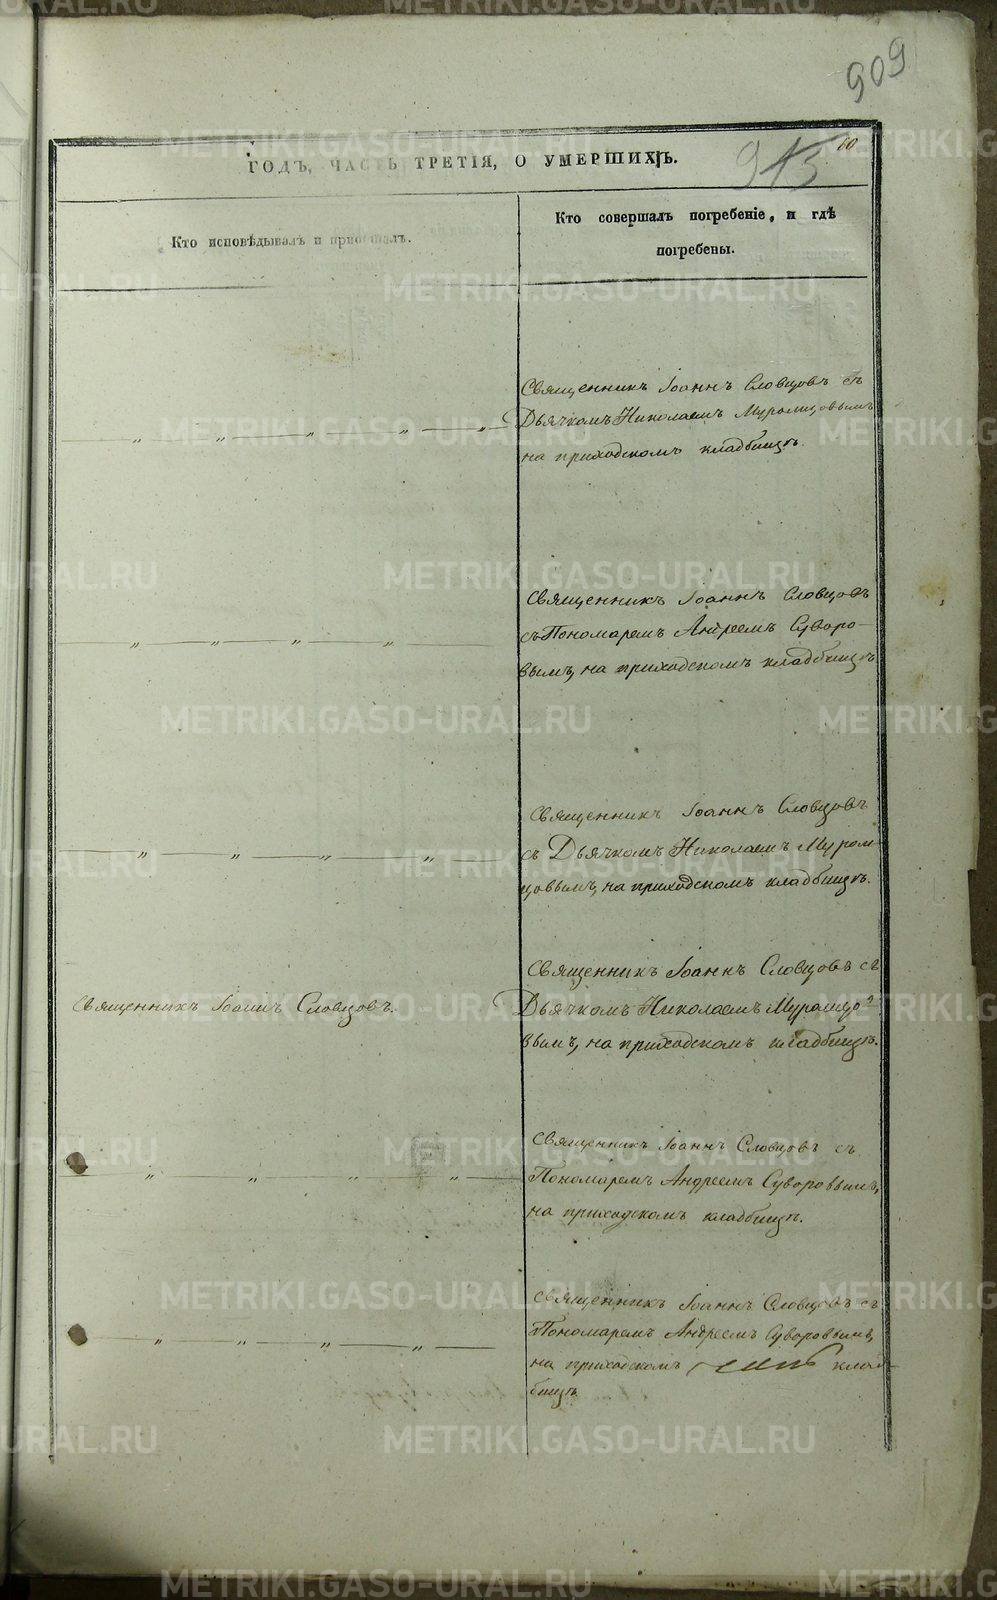 909
913
60
ГОДЪ, ЧАСТЬ ТРЕТІЯ, О УМЕРШИХЪ.
Кто исповѣдывалъ и пріобщалъ.
Кто совершалъ погребеніе, и гдѣ
погребены.
Священникъ Іоаннъ Словцовъ съ
Дьячкомъ Николаемъ Муромцовымъ
на приходскомъ кладбищѣ.
Священникъ Іоаннъ Словцовъ
съ Пономаремъ Андреемъ Суворо-
вымъ, на приходскомъ кладбищѣ
Священникъ Іоаннъ Словцовъ
съ Дьячкомъ Николаемъ Муром-
цовымъ, на приходскомъ кладбищѣ.
Священникъ Іоаннъ Словцовъ.
Священникъ Іоаннъ Словцовъ съ
Дьячкомъ Николаемъ Муромцо-
вымъ, на приходскомъ кладбищѣ.
Священникъ Іоаннъ Словцовъ съ
Пономаремъ Андреемъ Суворовымъ,
на приходскомъ кладбищѣ.
Священникъ Іоаннъ Словцовъ съ
Пономаремъ Андреемъ Суворовымъ,
на приходскомъ клад-
бищѣ
METRIKI.GASO-URAL.RU